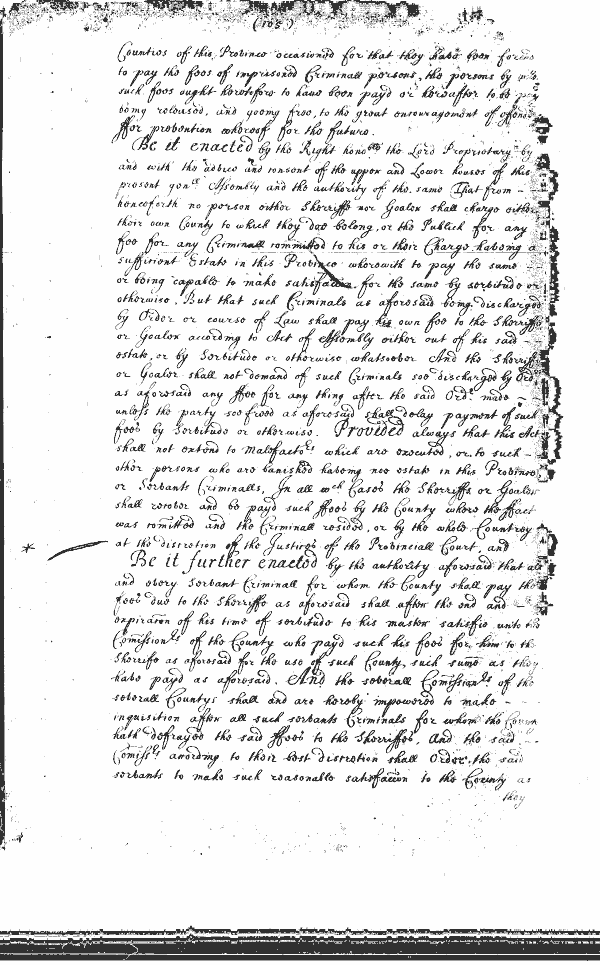 (103)
Counties of this Province occasioned for that they have been forced
to pay the fees of imprisoned Criminall persons, the persons by
such fees ought heretofore to have been payd or hereafter to be
being released, and going free, to the great encouragement of
ffor prevention whereof for the future.
Be it enacted by the Right honoble the Lord Proprietary by
and with the advice and consent of the upper and Lower houses of this
present genll Assembly and the authority of the same That from
henceforth no person either Sherriffe nor Goaler shall charge either
their own County to which they doe belong, or the Publick for any
fee for any Criminall committed to his or their Charge haveing a
sufficient Estate in this Province wherewith to pay the same
or being capable to make satisfacon for the same by servitude or
otherwise. But that such Criminals as aforesaid being discharged
by Order or course of Law shall pay his own fee to the Sherriffe
or Goaler according to Act of Assembly either out of his said
estate, or by Servitude or otherwise whatsoever And the Sherriffe
or Goaler shall not demand of such Criminals soe discharged by Ordr
as aforesaid any ffee for any thing after the said Ordr made
unless the party soe freed as aforesaid shall delay payment of such
fees by Servitude or otherwise. Provided always that this Act
shall not extend to Malefactors which are executed, or to such
other persons who are banished haveing noe estate in this Province
or Servants Criminalls, In all wch Cases the Sherriffs or Goaler
shall receive and be payd such ffees by the County where the ffact
was comitted and the Criminall resided, or by the whole Countrey
at the discretion off the Justices of the Provinciall Court, and
Be it further enacted by the authority aforesaid that all
and every Servant Criminall for whom the County shall pay the
fees due to the Sherriffe as aforesaid shall after the end and
expiracon of his time of servitude to his master satisfie unto the
Comissionrs of the County who payd such his fees for him to the
Sherriffe as aforesaid for the use of such County, such sume as they
have payd as aforesaid. And the severall Comissionrs of the
severall Countys shall and are hereby impowered to make
inquisition after all such servants Criminals for whom the County
hath defrayed the said ffees to the Sherriffes, And the said
Comissrs according to their best discretion shall Order the said
servants to make such reasonable satisfacon to the County as
they